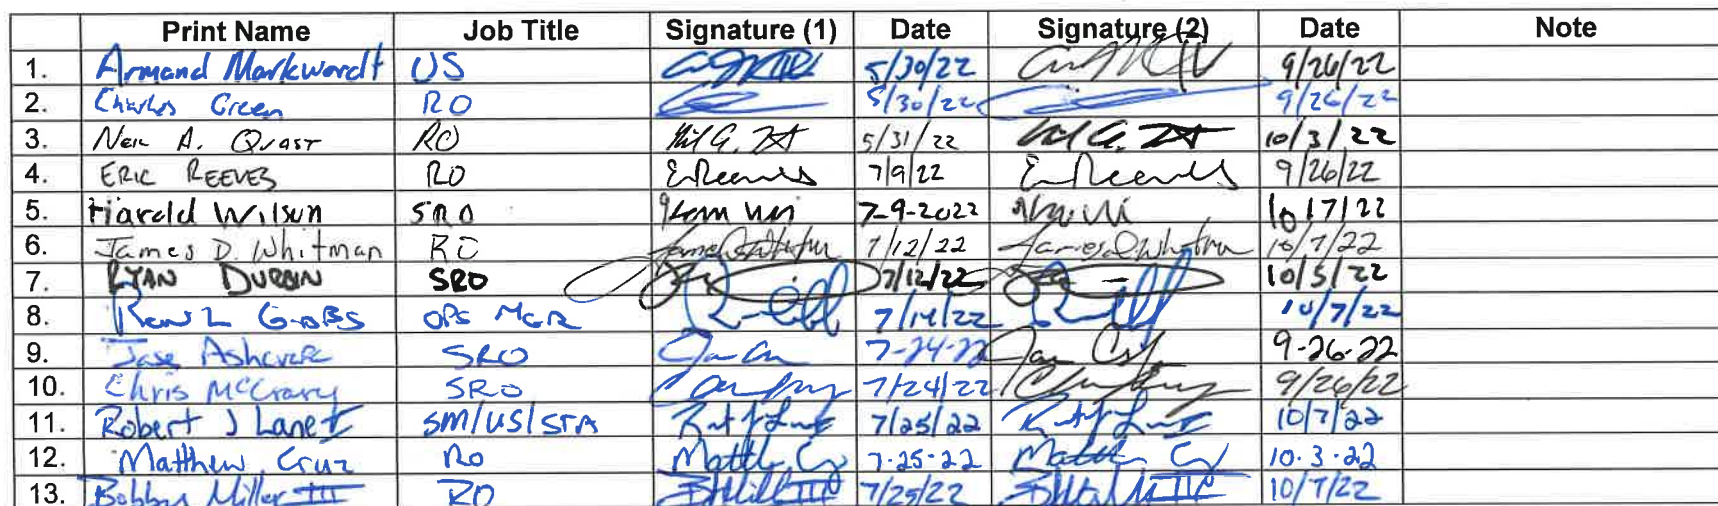 Print Name Job Title Signature (1) Date Signature (2) Date Note
1. Armand Markwardt US 5/30/22 9/26/22
2. Charles Green RO 5/30/22 9/26/22
3. Neil A. Quast RO 5/31/22 10/3/22
4. ERIC REEVES RO E Reeves 7/9/22 E Reeves 9/26/22
5. Harold Wilson SRO 7-9-2022 10/7/22
6. James D. Whitman RO James D Whitman 7/12/22 James D Whitman 10/7/22
7. RYAN DURBIN SRO 7/12/22 10/5/22
8. GIBBS OPS MGR 7/14/22 10/7/22
9. SRO 7-24-22 9-26-22
10. Chris McCrary SRO 7/24/22 9/26/22
11. Robert J Lane II SM/US/STA 7/25/22 10/7/22
12. Matthew Cruz RO 7-25-22 10-3-22
13. Bobby Miller III RO 7/25/22 10/7/22